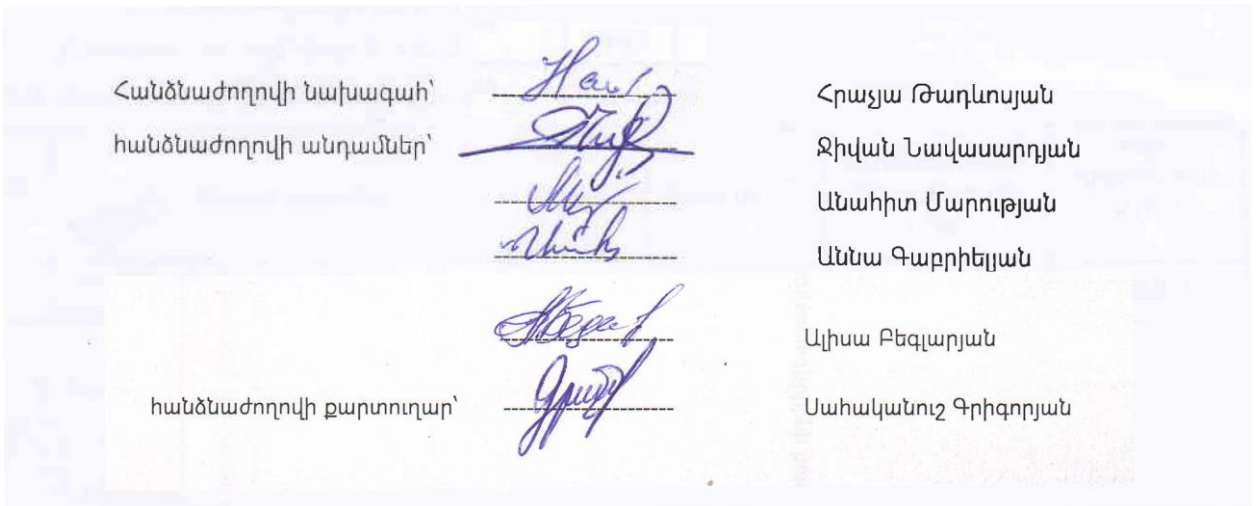 Հանձնաժողովի նախագահ՝ Հրաչյա Թադևոսյան
հանձնաժողովի անդամներ՝ Ջիվան Նավասարդյան
Անահիտ Մարության
Աննա Գաբրիելյան
Ալիսա Բեգլարյան
հանձնաժողովի քարտուղար՝ Սահականուշ Գրիգորյան